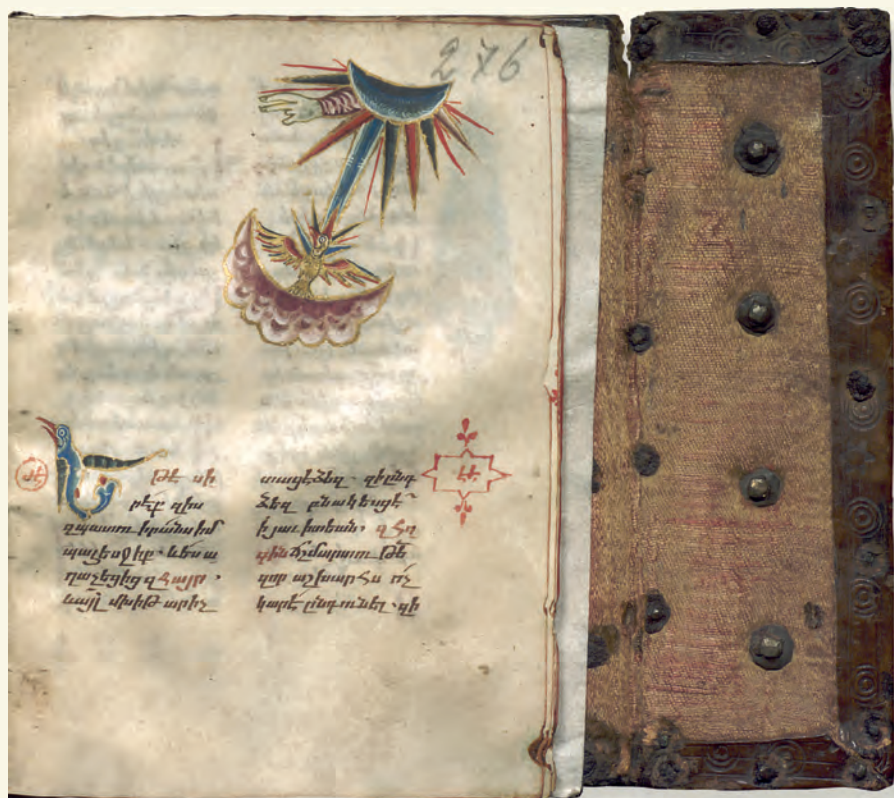 276
Եթէ սի
րէք զիս
զպատուիրանս իմ
պահեսջիք. և ես ա
ղաչեցից զՀայր.
և այլ մխիթարիչ
տացէ ձեզ. զի ընդ
ձեզ բնակեսցէ
ի յաւիտեան. զՀո
գին ճշմարտութե
զոր աշխարհս ոչ
կարէ ընդունել. զի